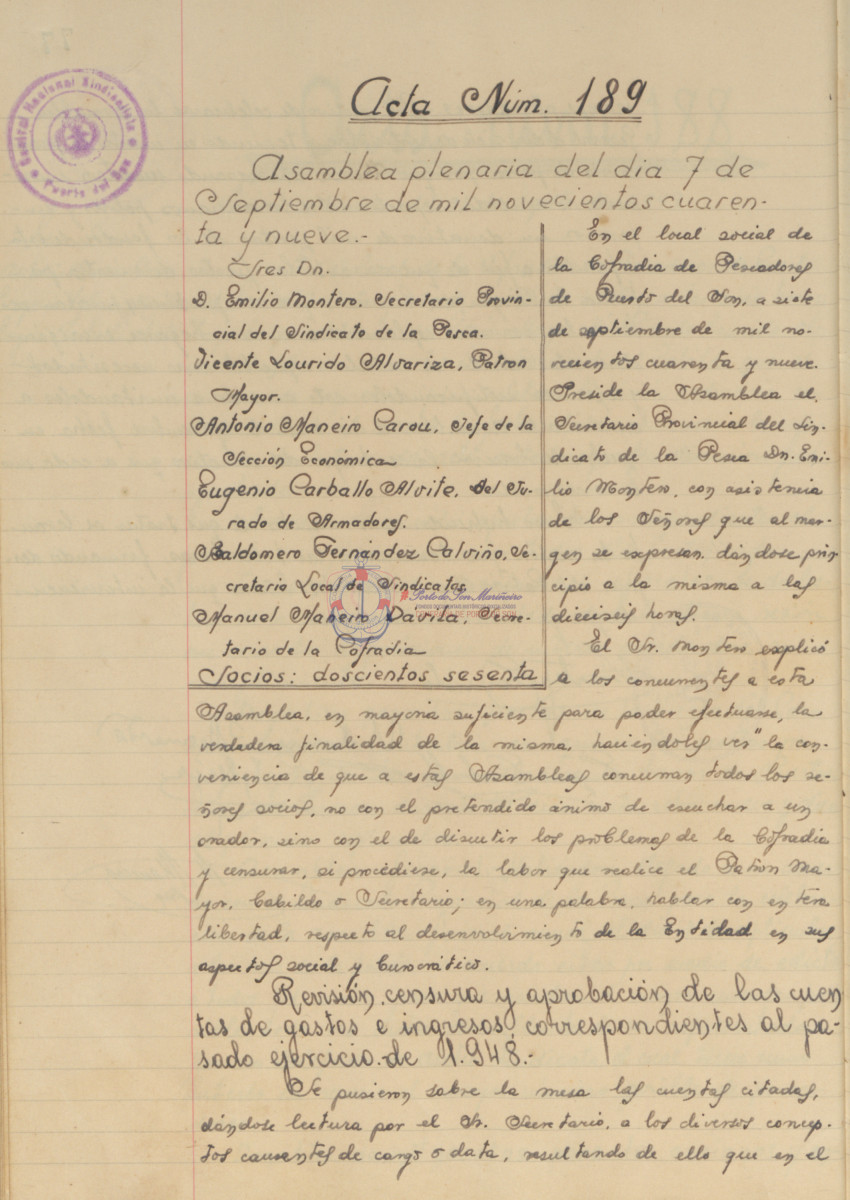 Central Nacional Sindicalista
Puerto del Son
Acta Núm. 189
Asamblea plenaria del dia 7 de
Septiembre de mil novecientos cuaren-
ta y nueve.-
Sres Dn.
D. Emilio Montero, Secretario Provin-
cial del Sindicato de la Pesca.
Vicente Lourido Alvariza, Patron
Mayor.
Antonio Maneiro Carou, Jefe de la
Sección Económica
Eugenio Carballo Alvite, del Ju-
rado de Armadores.
Baldomero Fernández Calviño, Se-
cretario Local de Sindicatos
Manuel Maneiro Davila, Secre-
tario de la Cofradia
Socios: doscientos sesenta
En el local social de
la Cofradia de Pescadores
de Puerto del Son, a siete
de septiembre de mil no-
vecientos cuarenta y nueve.
Preside la Asamblea el,
Secretario Provincial del Sin-
dicato de la Pesca Dn. Emi-
lio Montero, con asistencia
de los Señores que al mar-
gen se expresan. dándose prin
cipio a la misma a las
dieciseis horas.
El Sr. Montero explicó
a los concurrentes a esta
Asamblea, en mayoria suficiente para poder efectuarse, la
verdadera finalidad de la misma, haciéndoles ver "la con-
veniencia de que a estas Asambleas concurran todos los se-
ñores socios, no con el pretendido ánimo de escuchar a un
orador, sino con el de discutir los problemas de la Cofradia
y censurar, si procediese, la labor que realice el Patron Ma-
yor, Cabildo o Secretario; en una palabra, hablar con entera
libertad, respecto al desenvolvimiento de la Entidad en sus
aspectos social y burocrático.
Revisión, censura y aprobación de las cuen
tas de gastos e ingresos, correspondientes al pa-
sado ejercicio de 1.948.-
Se pusieron sobre la mesa las cuentas citadas,
dándose lectura por el Sr. Secretario, a los diversos concep-
tos causantes de cargo o data, resultando de ello que en el
#Porto do Son Mariñeiro